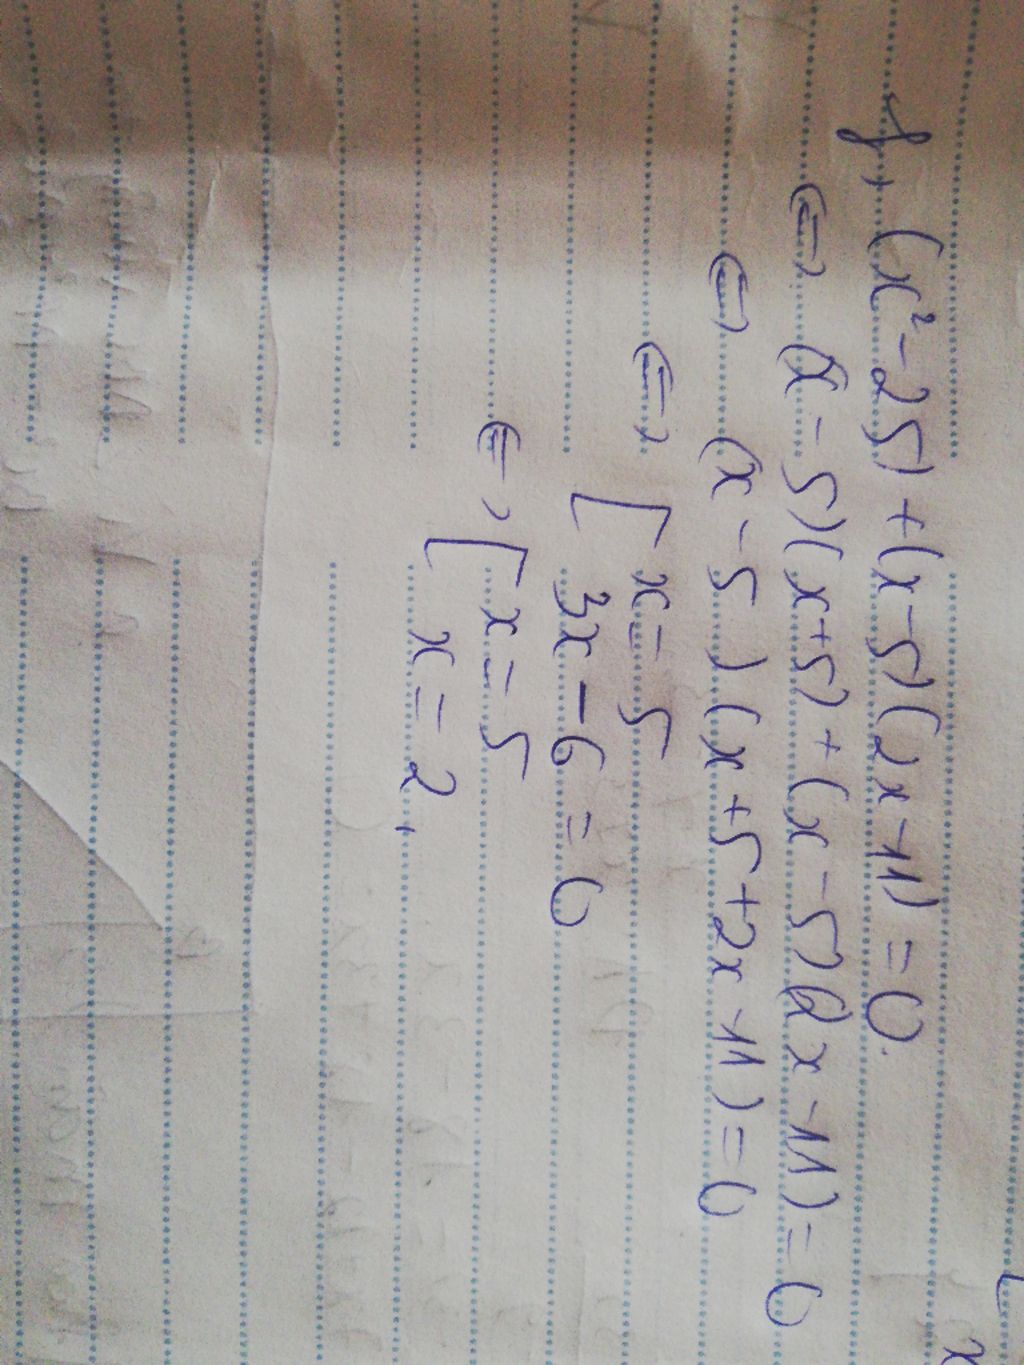 f, (x² - 25) + (x - 5)(2x - 11) = 0.
⇔ (x - 5)(x + 5) + (x - 5)(2x - 11) = 0
⇔ (x - 5)(x + 5 + 2x - 11) = 0
⇔ [ x = 5
3x - 6 = 0
⇔ [ x = 5
x = 2.
x